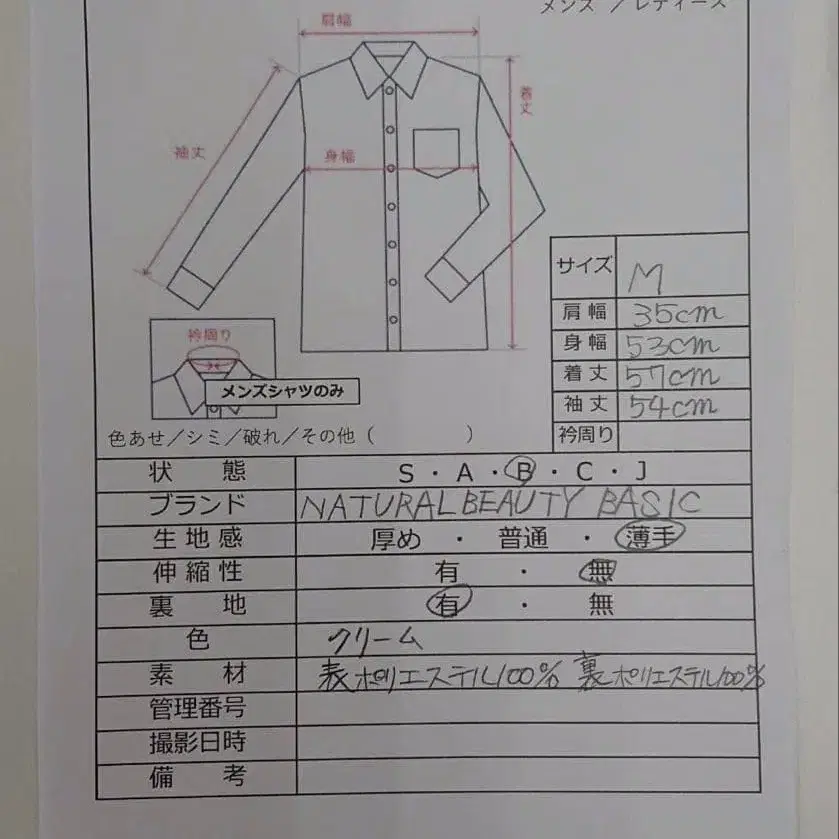 メンズ ／レディース
肩幅
着丈
袖丈
身幅
衿周り
メンズシャツのみ
色あせ／シミ／破れ／その他（　　　　）
サイズ M
肩幅 35cm
身幅 53cm
着丈 57cm
袖丈 54cm
衿周り
状態 S・A・B・C・J
ブランド NATURAL BEAUTY BASIC
生地感 厚め ・ 普通 ・ 薄手
伸縮性 有 ・ 無
裏地 有 ・ 無
色 クリーム
素材 表ポリエステル100% 裏ポリエステル100%
管理番号
撮影日時
備考